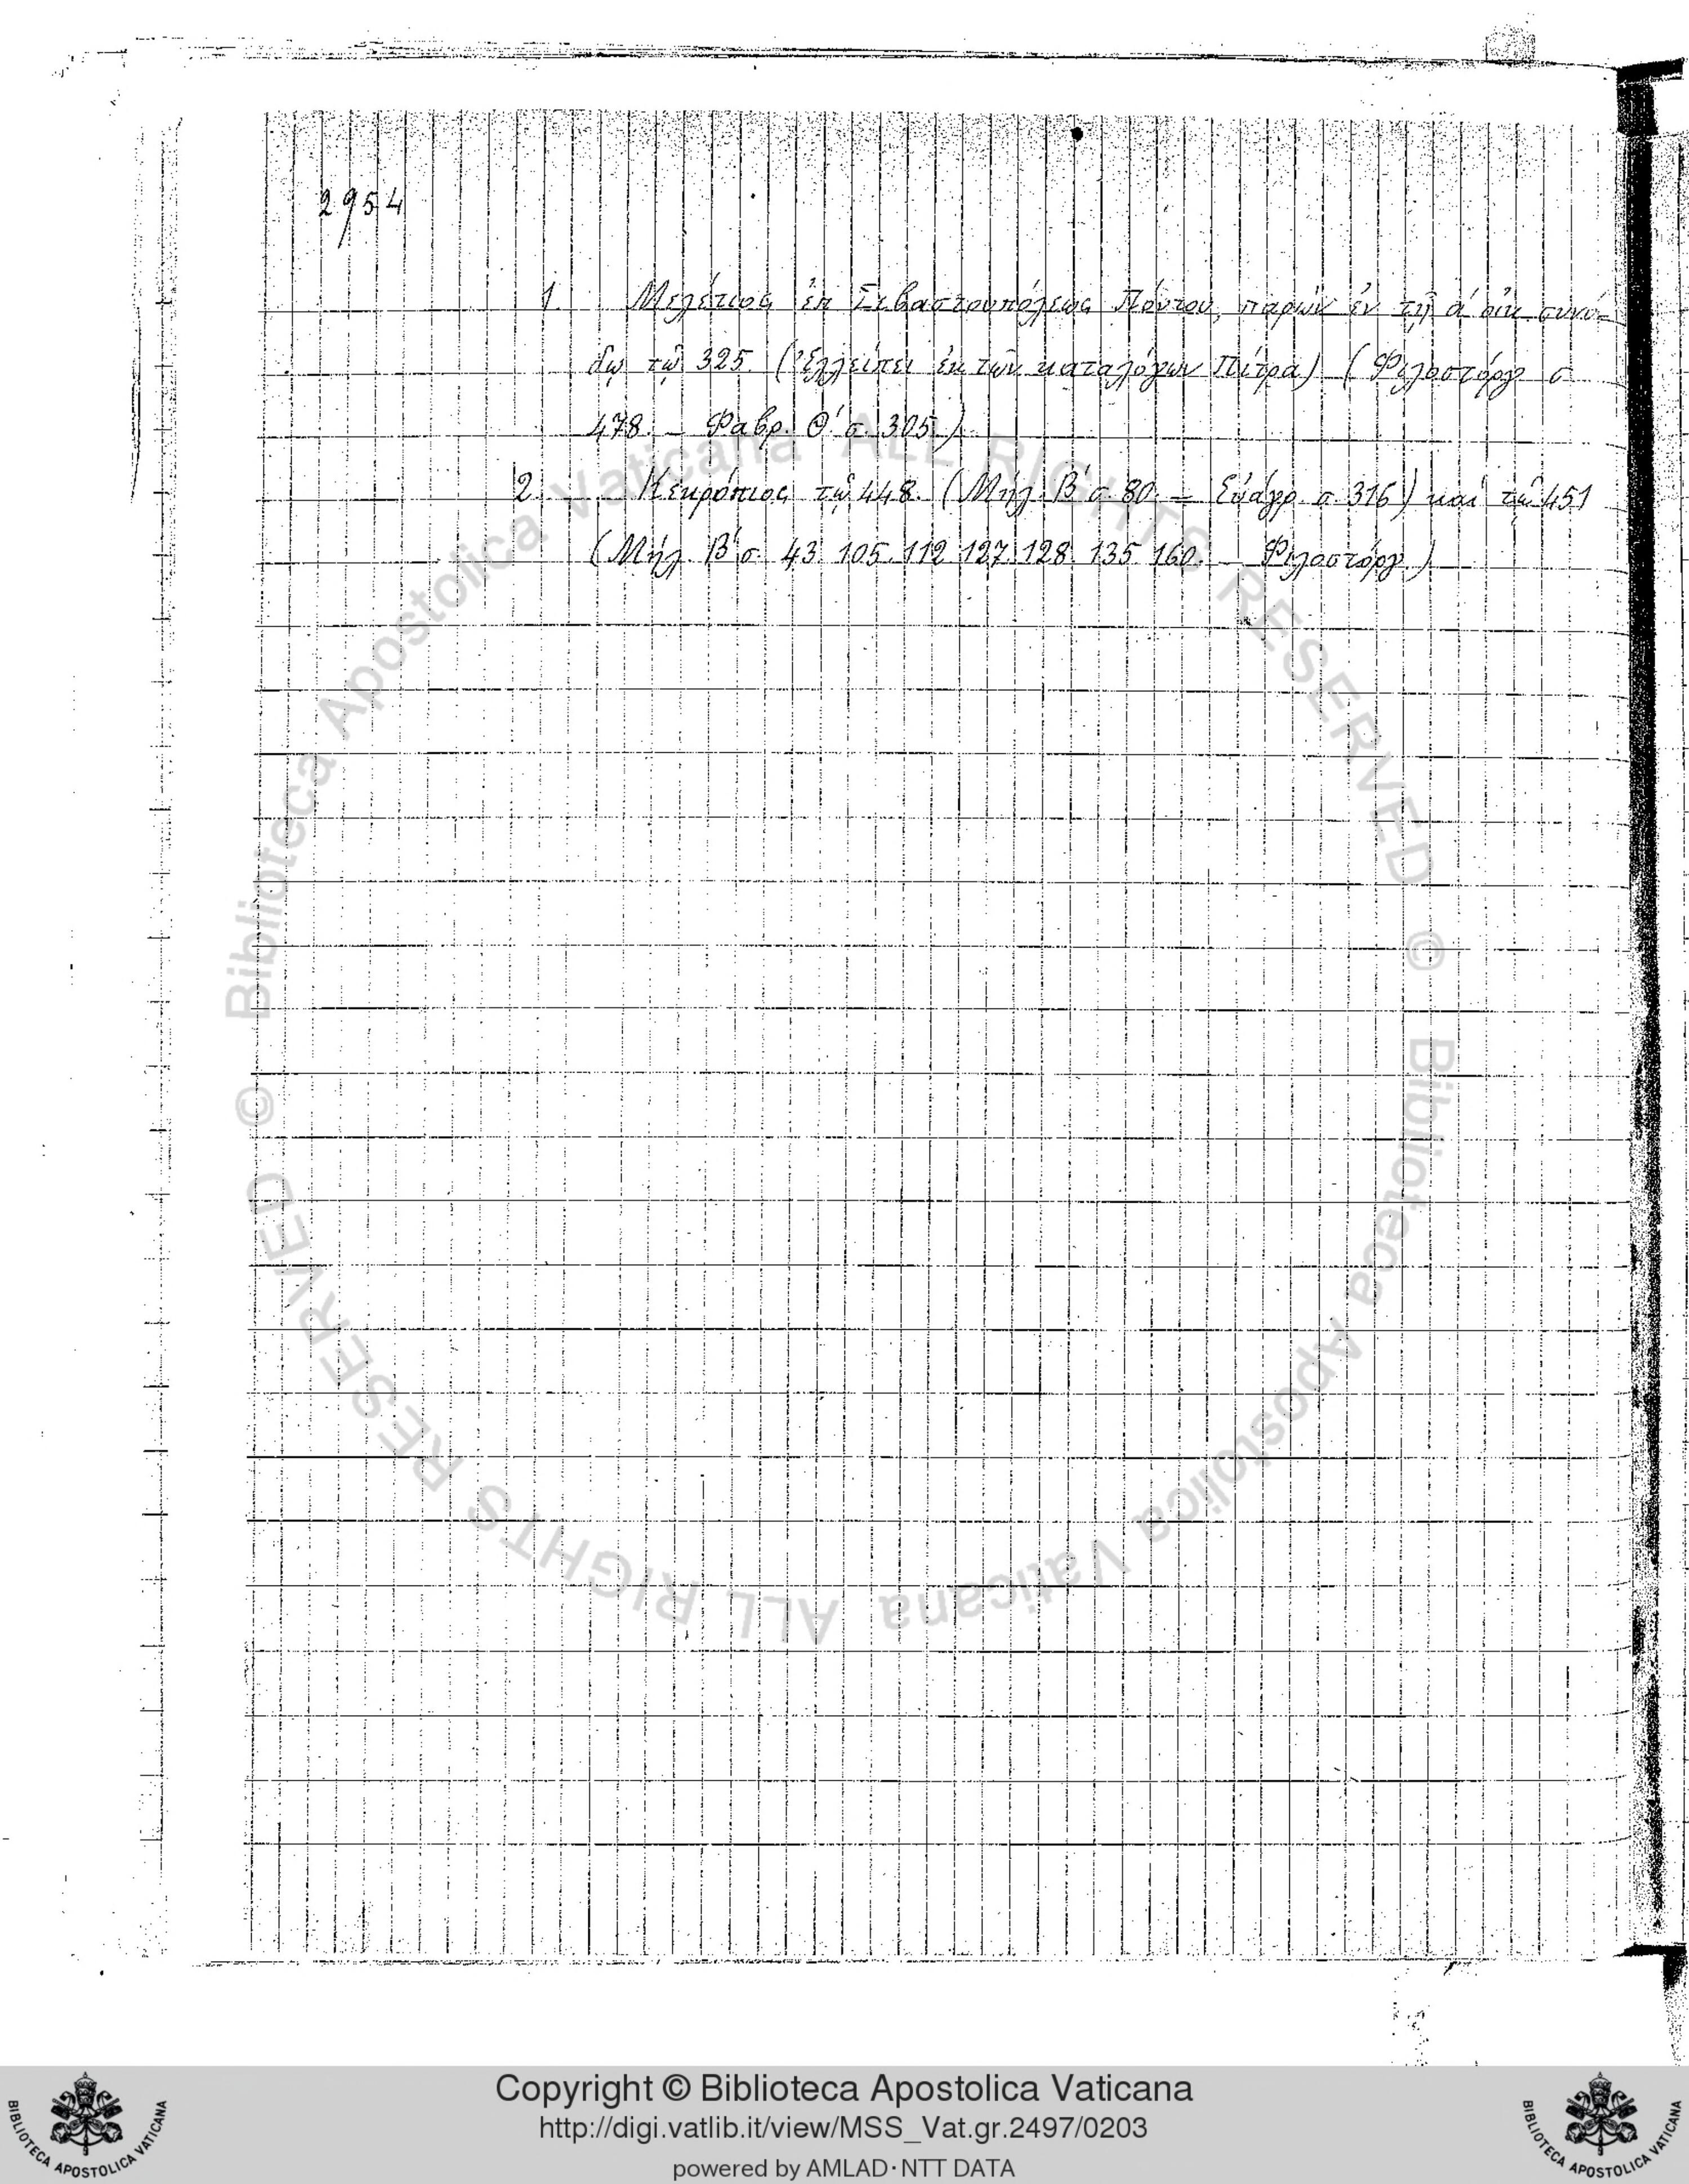 2954
1. Μελέτιος ἐπ Σεβαστουπόλεως Πόντου, παρὼν ἐν τῇ α΄ οἰκ. συνό-
δῳ τῷ 325. (Ἐλλείπει ἐκ τῶν καταλόγων Πίτρα) (Φιλοστόργ. σ.
478. – Φαβρ. Θ΄ σ. 305.)
2. Κεκρόπιος τῷ 448. (Μήλ. Β΄ σ. 80. – Εὐάγρ. σ. 316) καὶ τῷ 451
(Μήλ. Β΄ σ. 43. 105. 112. 127. 128. 135. 160. – Φιλοστόργ.)
© Biblioteca Apostolica Vaticana ALL RIGHTS RESERVED
© Biblioteca Apostolica Vaticana ALL RIGHTS RESERVED
Copyright © Biblioteca Apostolica Vaticana
http://digi.vatlib.it/view/MSS_Vat.gr.2497/0203
powered by AMLAD·NTT DATA
BIBLIOTECA APOSTOLICA VATICANA
BIBLIOTECA APOSTOLICA VATICANA